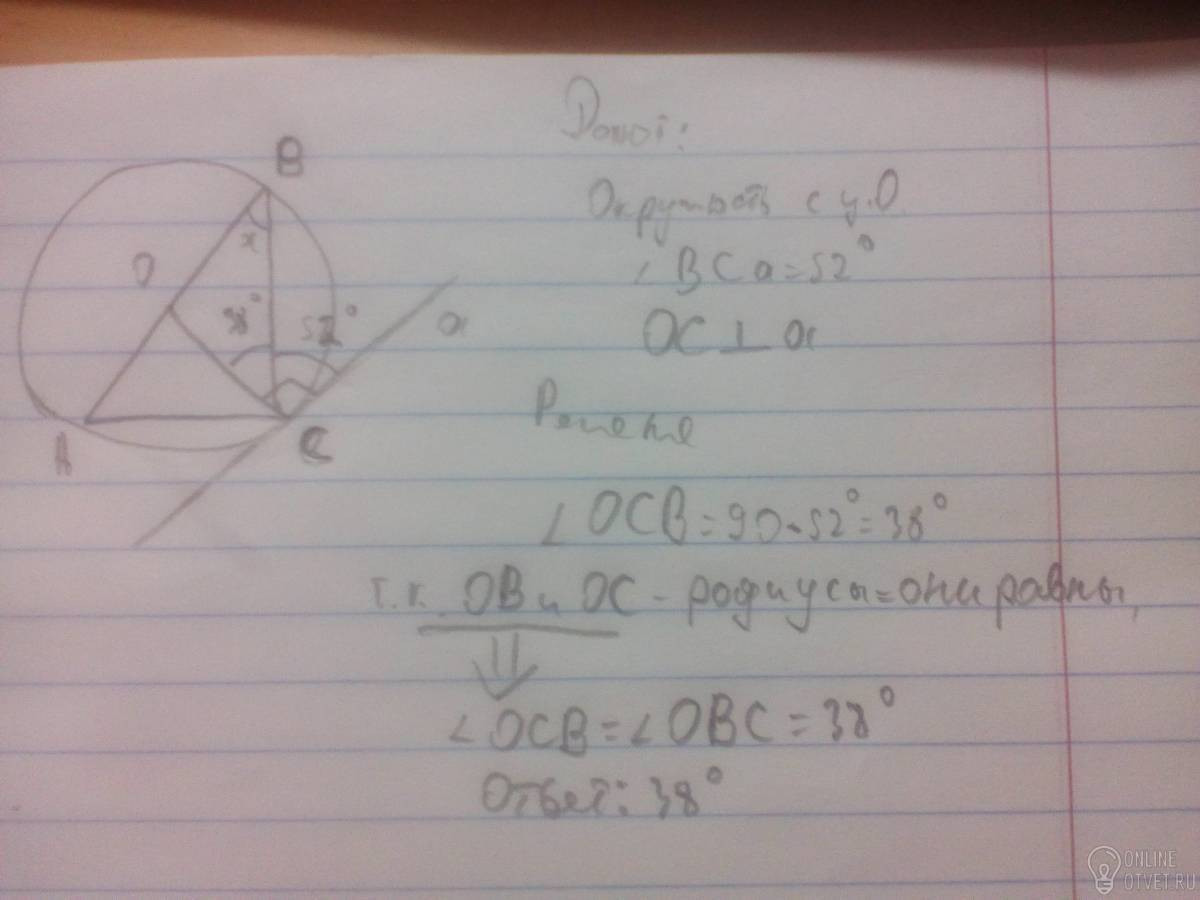 B
O
x
38°
52°
a
A
C
Дано:
Окружность с ц.О
∠BCa=52°
OC⊥a
Решение
∠OCB=90-52°=38°
т.к. OB и OC - радиусы=они равны,
⇓
∠OCB=∠OBC=38°
Ответ: 38°
ONLINE
OTVET.RU